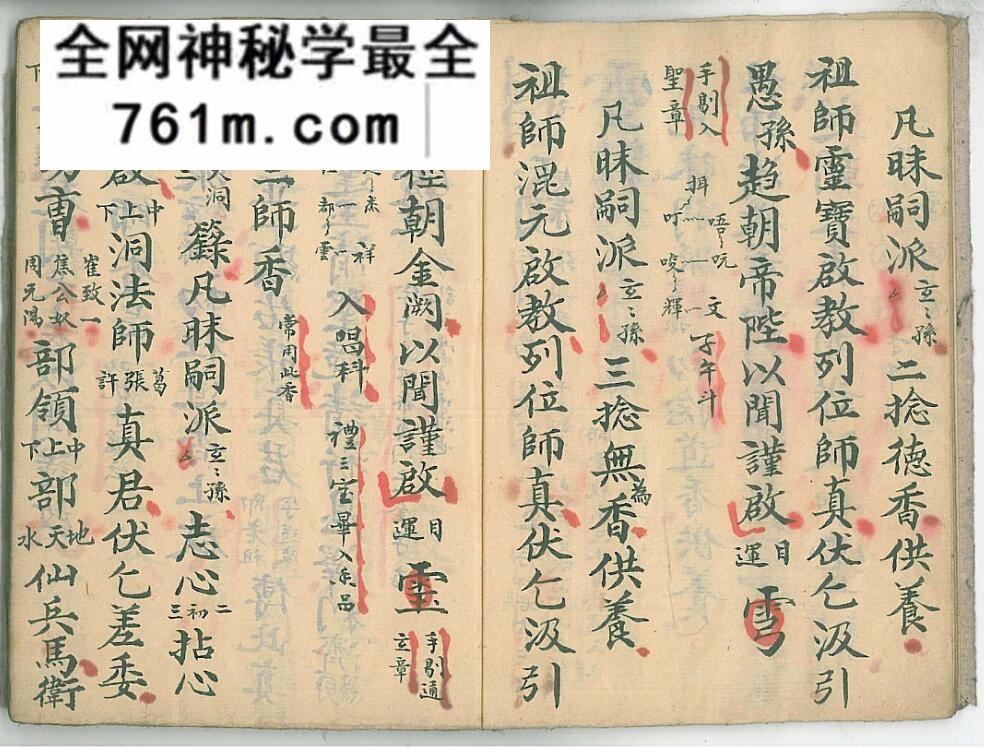 全网神秘学最全
761m.com
凡昧嗣派玄〻孫二捻德香供養
祖師靈寶啟教列位師真伏乞汲引
愚孫趨朝帝陛以聞謹啟 目運
手剔入
聖章
唔〻吭
吁〻
唆〻輝
文
子午斗
凡昧嗣派玄〻孫三捻無為香供養
祖師混元啟教列位師真伏乞汲引
徑朝金闕以聞謹啟 目運
手剔通
玄章
祥
入唱科 禮三宝畢入香品
三師香 常用此香
籙凡昧嗣派玄〻孫志心 初二三 拈心
啟上中下洞法師葛張許真君伏乞差委
曹崔致一焦公奴周元鴻部領上中下部天地水仙兵馬衛